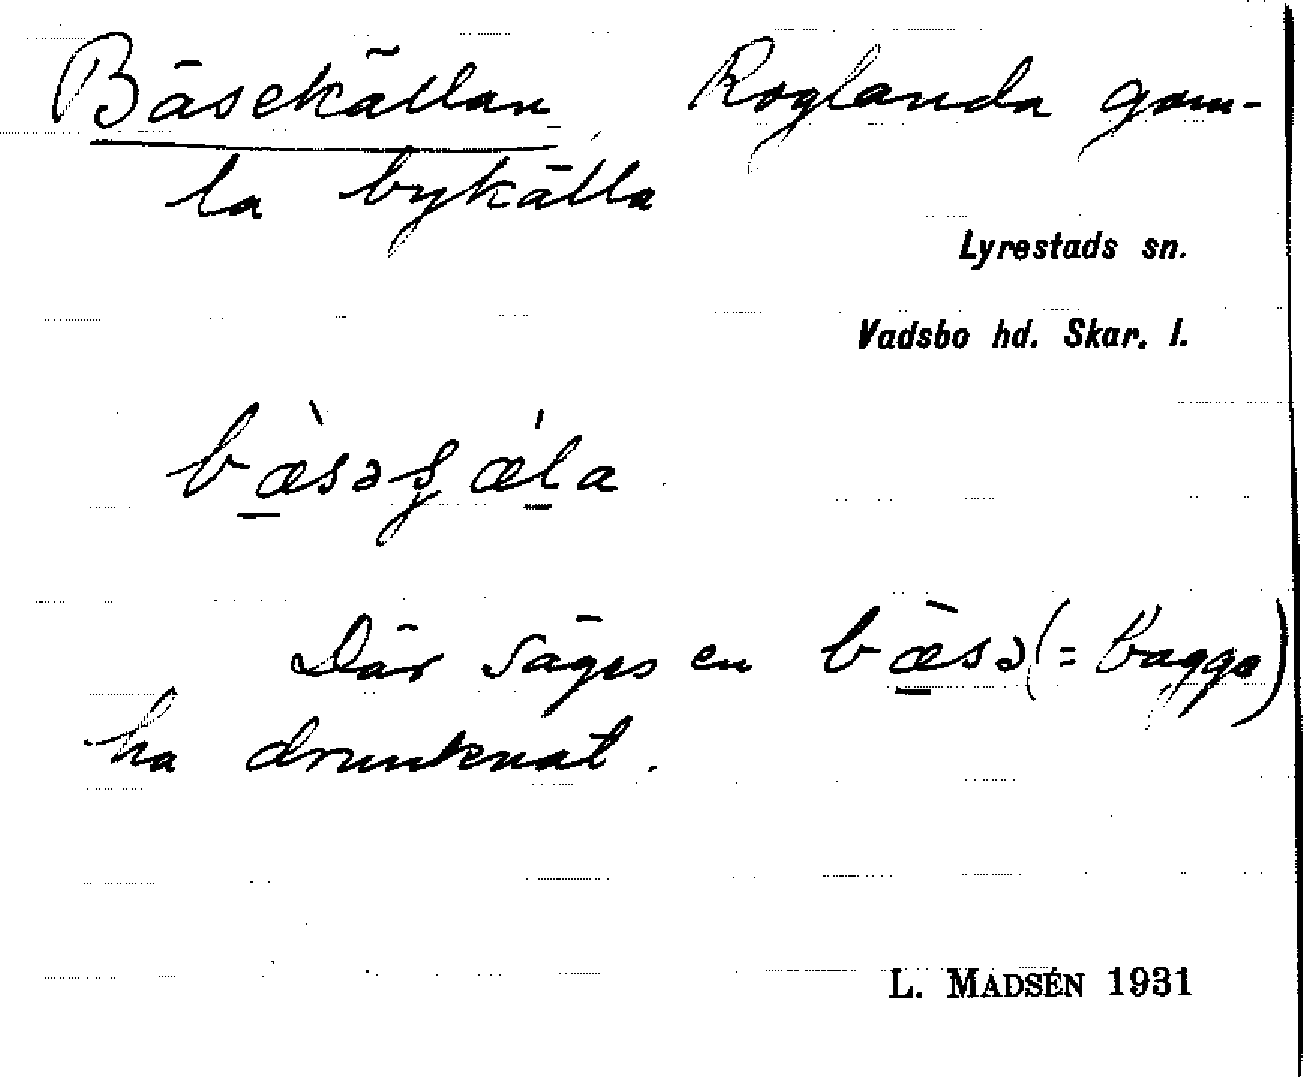 Bäsekällan Roglanda gam-
la bykälla
Lyrestads sn.
Vadsbo hd. Skar. l.
bæ̀səʂǽla
Där säges en bæ̀sə (= bagge)
ha drunknat.
L. MADSÉN 1931